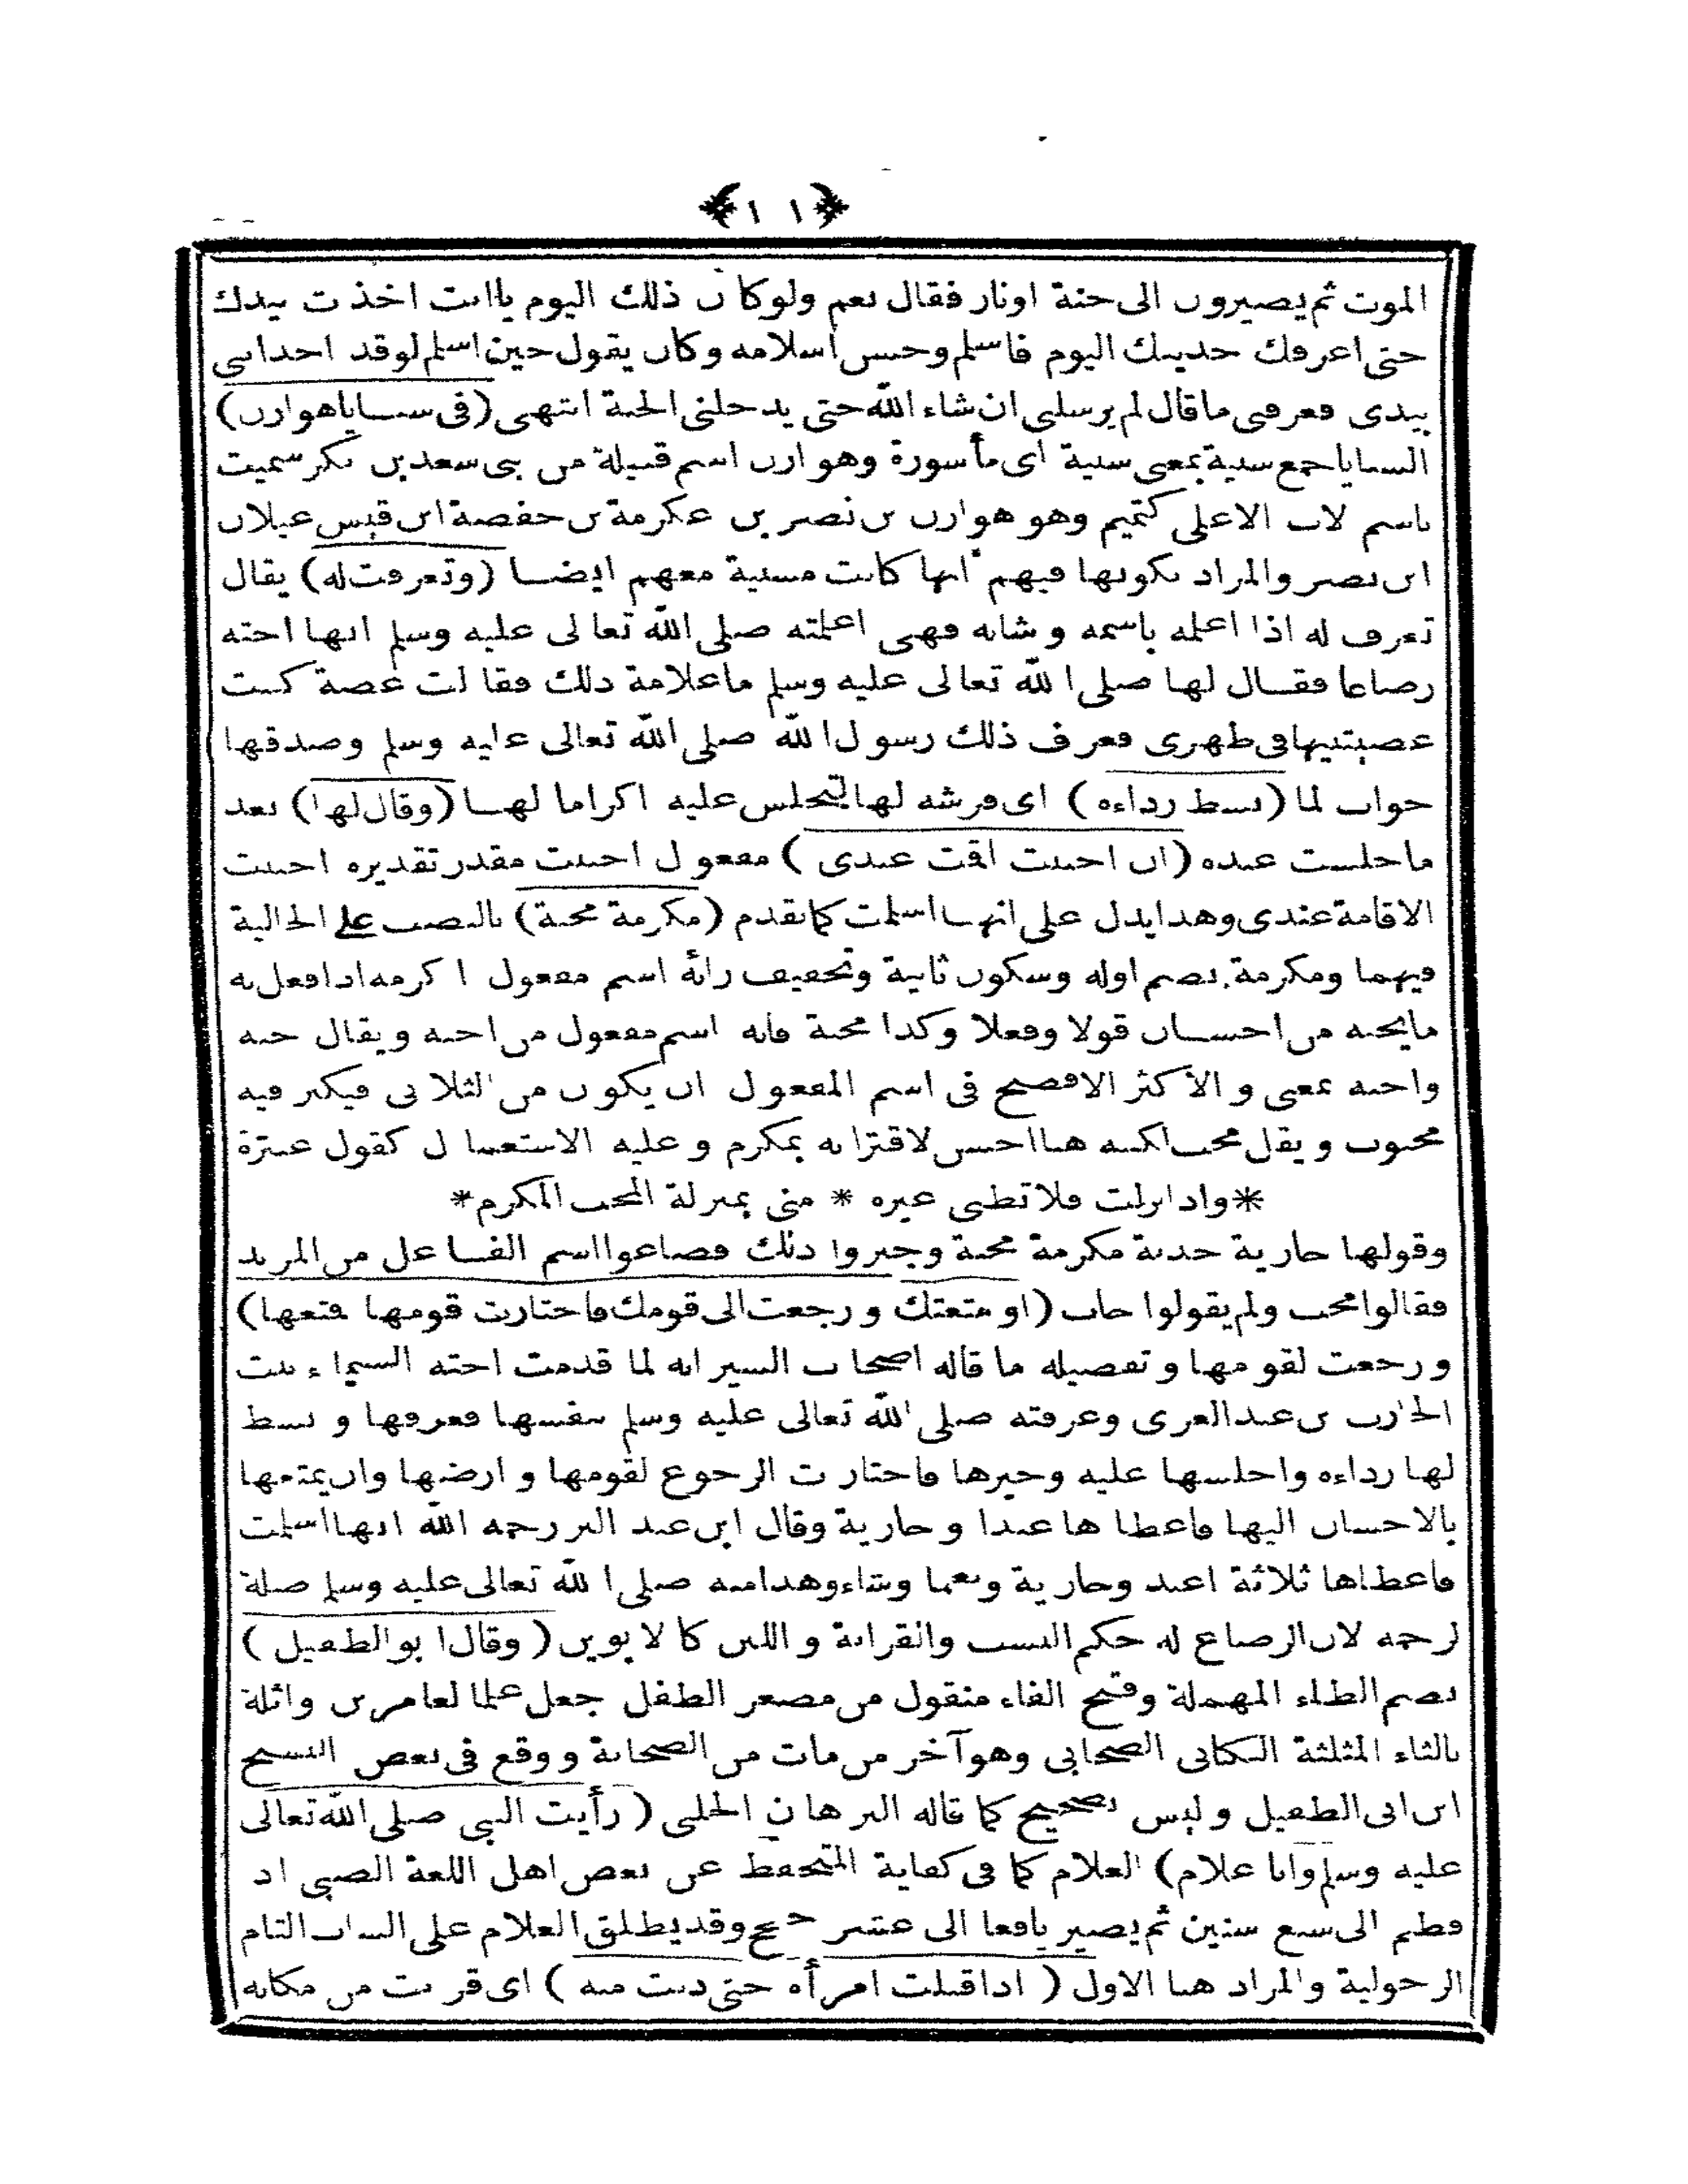 ﴿١١﴾
الموت ثم يصيرون الى جنة اونار فقال نعم ولوكان ذلك اليوم ياابت اخذت بيدك
حتى اعرفك حديثك اليوم فاسلم وحسن اسلامه وكان يقول حين اسلم لوقد اخذابنى
بيدى فعرفنى ماقال لم يرسلنى ان شاء الله حتى يدخلنى الجنة انتهى (فى سبايا هوازن)
السبايا جمع سبية بمعنى سبية اى مأسورة وهوازن اسم قبيلة من بنى سعد بن بكر سميت
باسم لاب الاعلى كتميم وهو هوازن بن نصر بن عكرمة بن حفصة ابن قيس عيلان
ابن نصر والمراد بكونها فيهم انها كانت مسبية معهم ايضا (وتعرفت له) يقال
تعرف له اذا اعلمه باسمه وشانه فهى اعلمته صلى الله تعالى عليه وسلم انها اخته
رضاعا فقال لها صلى الله تعالى عليه وسلم ماعلامة ذلك فقالت عضة كنت
عضبتنيها فى ظهرى فعرف ذلك رسول الله صلى الله تعالى عليه وسلم وصدقها
جواب لما (بسط رداءه) اى فرشه لها لتجلس عليه اكراما لها (وقال لها) بعد
ماجلست عنده (ان احببت اقت عندى) مفعول احببت مقدر تقديره احببت
الاقامة عندى وهذا يدل على انها اسلمت كما تقدم (مكرمة محبة) بالنصب على الحالية
فيهما ومكرمة بضم اوله وسكون ثانية وتخفيف رائه اسم مفعول اكرمه اذا فعل به
مايحبه من احسان قولا وفعلا وكذا محبة فانه اسم مفعول من احبه ويقال حبه
واحبه بمعنى والاكثر الافصح فى اسم المفعول ان يكون من الثلاثى فيكثر فيه
محبوب ويقل محب لكنه هنا احسن لاقترانه بمكرم وعليه الاستعمال كقول عنترة
*واذا نزلت فلا تظنى غيره * منى بمنزلة المحب المكرم*
وقولها جارية حدبة مكرمة محبة وجبروا ذلك فصاغوا اسم الفاعل من المزيد
فقالوا محب ولم يقولوا حاب (او متعتك ورجعت الى قومك فاختارت قومها فتعها)
ورجعت لقومها وتفصيله ما قاله اصحاب السير انه لما قدمت اخته السيماء بنت
الحارث بن عبد العزى وعرفته صلى الله تعالى عليه وسلم بنفسها فعرفها وبسط
لها رداءه واجلسها عليه وخيرها فاختارت الرجوع لقومها وارضها وان يمتعها
بالاحسان اليها فاعطاها عبدا وجارية وقال ابن عبد البر رحمه الله انها اسلمت
فاعطاها ثلاثة اعبد وجارية ونعما وشاء وهذا منه صلى الله تعالى عليه وسلم صلة
لرحمه لان الرضاع له حكم النسب والقرابة واللبن كالابوين (وقال ابو الطفيل)
بضم الطاء المهملة وفتح الفاء منقول من مصغر الطفل جعل علما لعامر بن واثلة
بالثاء المثلثة الكنانى الصحابى وهو آخر من مات من الصحابة ووقع فى بعض النسخ
ابن ابى الطفيل وليس بصحيح كما قاله البرهان الحلبى (رأيت النبى صلى الله تعالى
عليه وسلم وانا غلام) الغلام كما فى كفاية المتحفظ عن بعض اهل اللغة الصبى اذ
فطم الى سبع سنين ثم يصير يافعا الى عشر حجج وقد يطلق الغلام على الشاب التام
الرجولية والمراد هنا الاول (اذا قبلت امرأه حتى دنت منه) اى قربت من مكانه